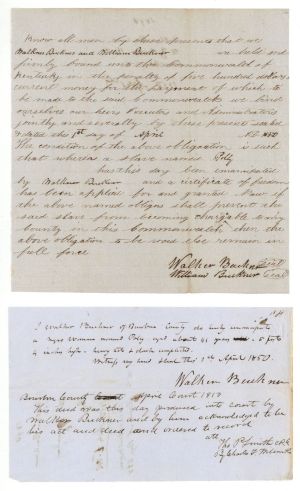 Know all men by these presents that we
Walker Buckner and William Buckner are held and
firmly bound unto the Commonwealth of
Kentucky in the penalty of five hundred dollars
current money for the payment of which to
be made to the said Commonwealth we bind
ourselves our heirs Executors and Administrators
jointly and severally by these presents sealed
& dated this 1st day of April AD 1850
The condition of the above obligation is
such that whereas a slave named Polly
has this day been emancipated
by Walker Buckner and a certificate of freedom
has been applied for and granted Now if
the above named obligors shall prevent the
said slave from becoming chargeable to any
county in this Commonwealth, then the
above obligation to be void else remain in
full force
Walker Buckner Seal
William Buckner Seal
I Walker Buckner of Bourbon County do hereby emancipate
a Negro Woman named Polly aged about 41 years 5 feet
4 inches high
Witness my hand this 1st April 1850.
Walker Buckner
Bourbon County Court April Court 1850
This deed was this day produced into court by
Walker Buckner and by him acknowledged to be
his act and deed and ordered to record
att
Tho P. Smith clk